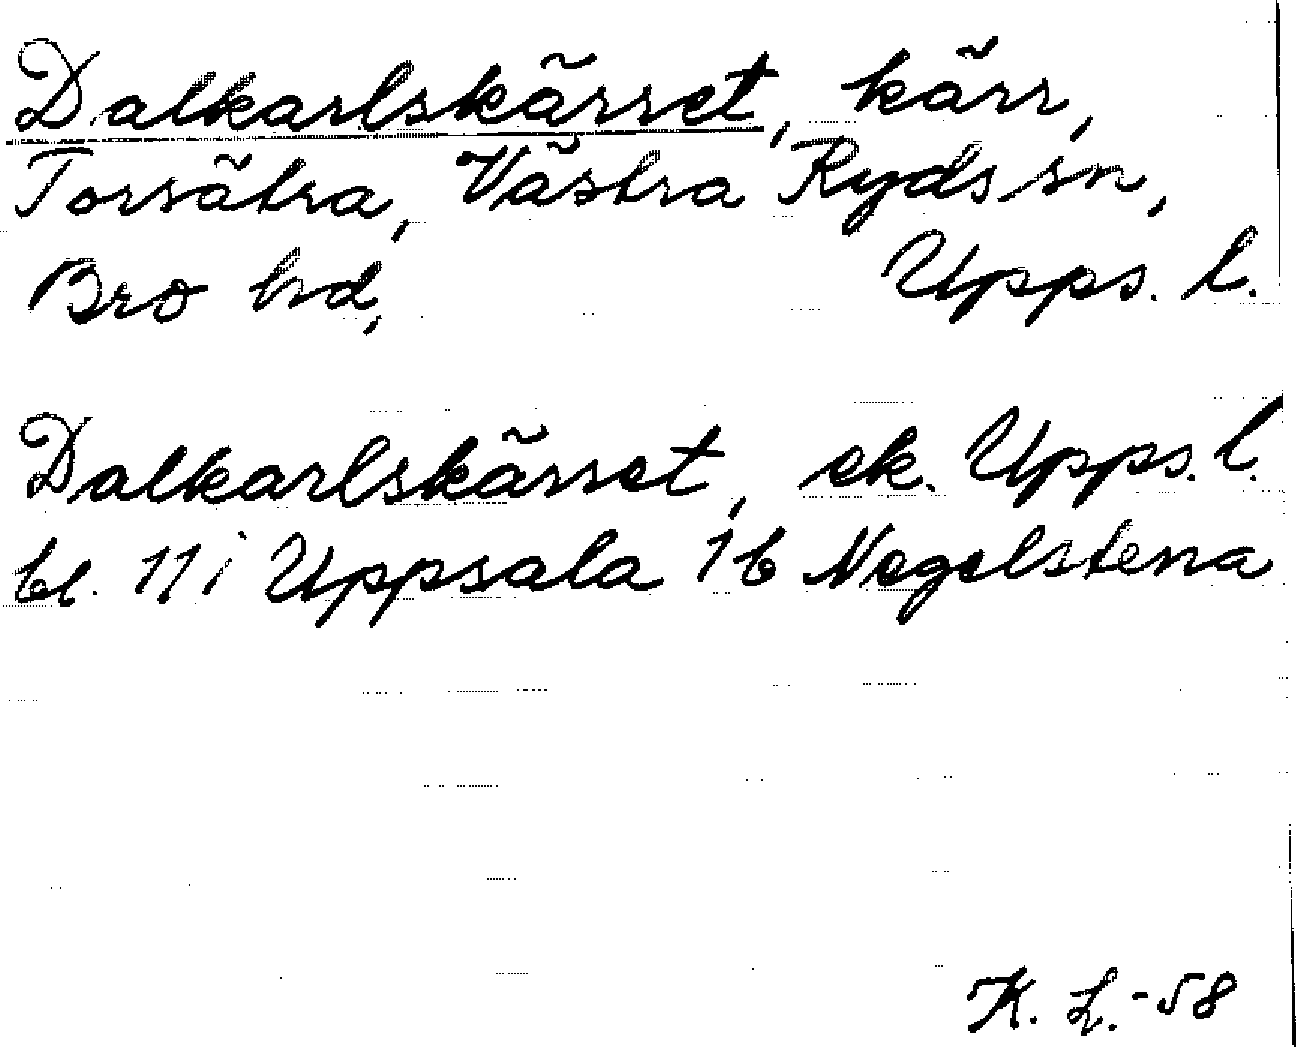 Dalkarlskärret, kärr,
Torsätra, Västra Ryds sn,
Bro hd, Upps. l.
Dalkarlskärret, ek. Upps. l.
bl. 11 i Uppsala 1b Negelstena
K. L. -58